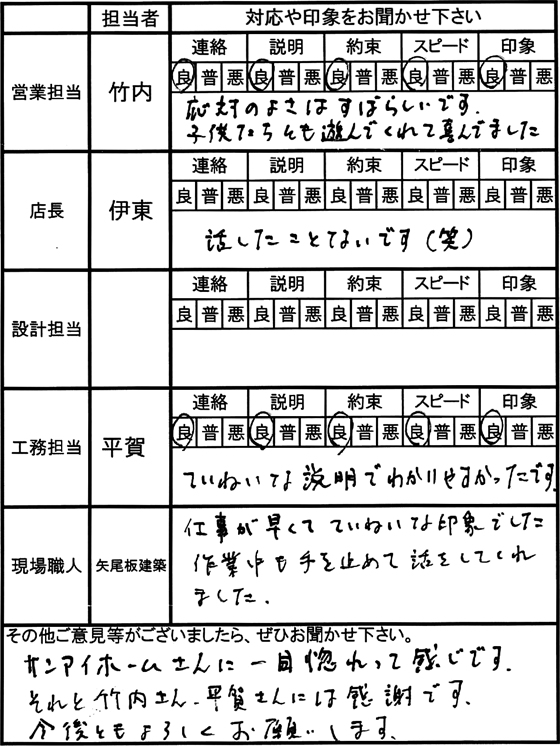 担当者 対応や印象をお聞かせ下さい
営業担当 竹内
連絡 説明 約束 スピード 印象
良 普 悪 良 普 悪 良 普 悪 良 普 悪 良 普 悪
応対のよさはすばらしいです.
子供たちとも遊んでくれて喜んでました
店長 伊東
連絡 説明 約束 スピード 印象
良 普 悪 良 普 悪 良 普 悪 良 普 悪 良 普 悪
話したことないです(笑)
設計担当
連絡 説明 約束 スピード 印象
良 普 悪 良 普 悪 良 普 悪 良 普 悪 良 普 悪
工務担当 平賀
連絡 説明 約束 スピード 印象
良 普 悪 良 普 悪 良 普 悪 良 普 悪 良 普 悪
ていねいな説明でわかりやすかったです.
現場職人 矢尾板建築
仕事が早くてていねいな印象でした
作業中も手を止めて話をしてくれ
ました.
その他ご意見等がございましたら、ぜひお聞かせ下さい。
サンアイホームさんに一目惚れって感じです.
それと竹内さん、平賀さんには感謝です.
今後ともよろしくお願いします.